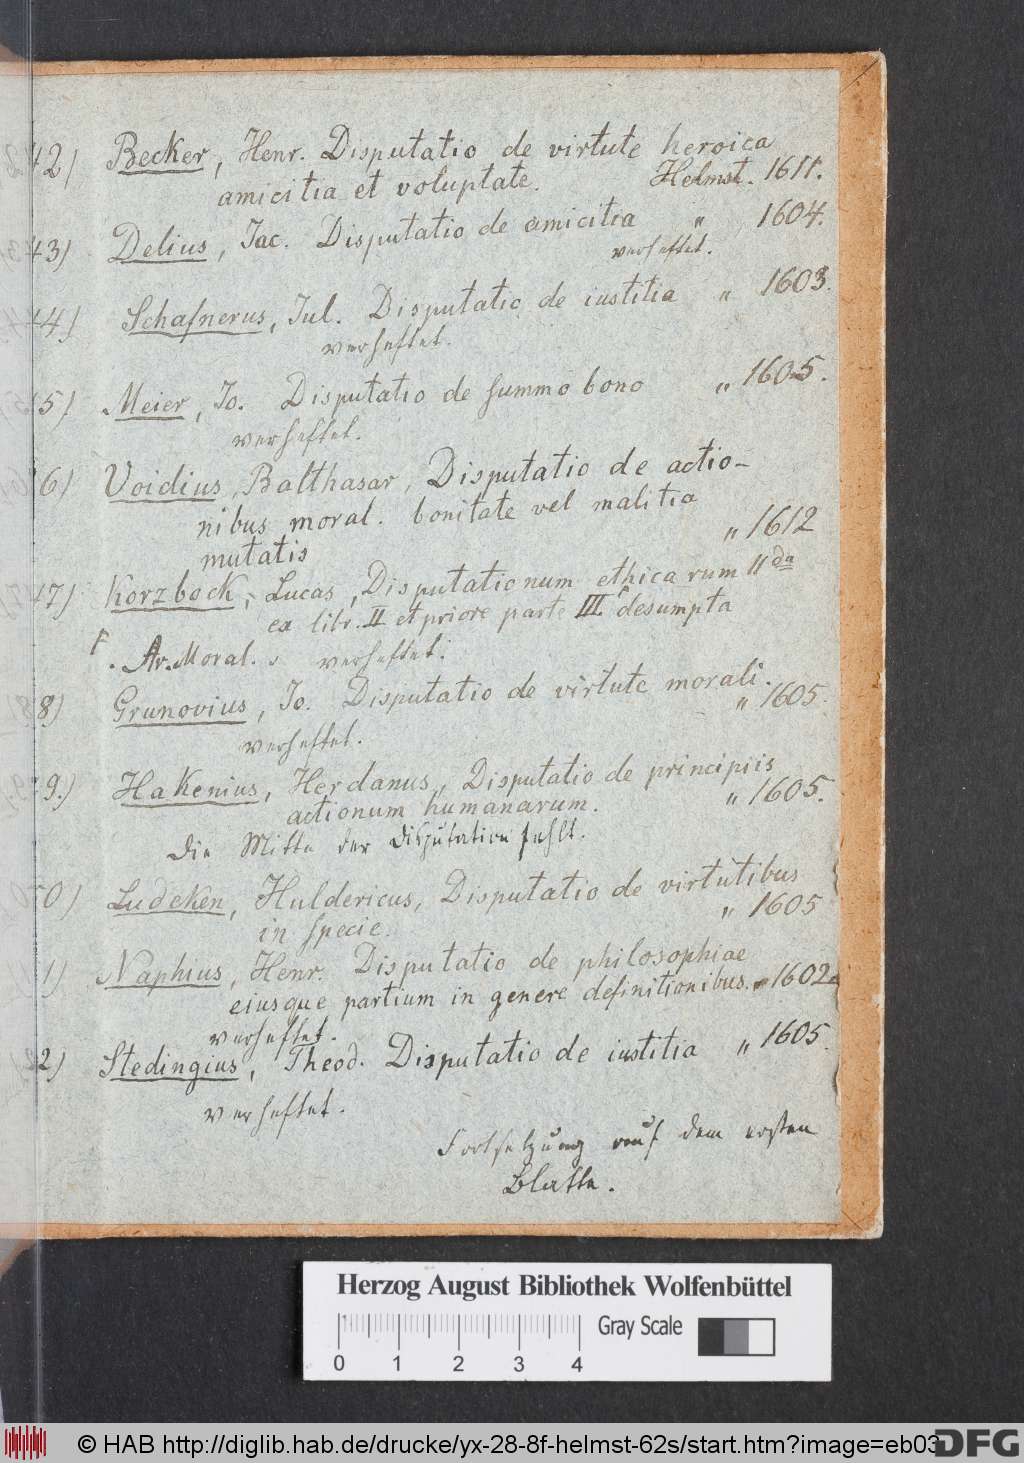 42) Becker, Henr. Disputatio de virtute heroica
amicitia et voluptate. Helmst. 1611.
43) Delius, Jac. Disputatio de amicitia " 1604.
verheftet.
44) Schafnerus, Jul. Disputatio de iustitia " 1603.
verheftet.
45) Meier, Jo. Disputatio de summo bono " 1605.
verheftet.
46) Voidius, Balthasar, Disputatio de actio-
nibus moral. bonitate vel malitia
mutatis " 1612
47) Korzbock, Lucas, Disputationum ethicarum 11da
ex libr. II et priore parte III desumpta
Ar. Moral. verheftet.
48) Grunovius, Jo. Disputatio de virtute morali.
" 1605.
verheftet.
49.) Hakenius, Herdanus, Disputatio de principiis
actionum humanarum. " 1605.
Die Mitte der Disputation fehlt.
50) Ludeken, Huldericus, Disputatio de virtutibus
in specie. " 1605
51) Naphius, Henr. Disputatio de philosophiae
eiusque partium in genere definitionibus. " 1602.
verheftet.
52) Stedingius, Theod. Disputatio de iustitia " 1605.
verheftet.
Fortsetzung auf dem ersten
Blatte.
Herzog August Bibliothek Wolfenbüttel
Gray Scale
0 1 2 3 4
© HAB http://diglib.hab.de/drucke/yx-28-8f-helmst-62s/start.htm?image=eb03
DFG